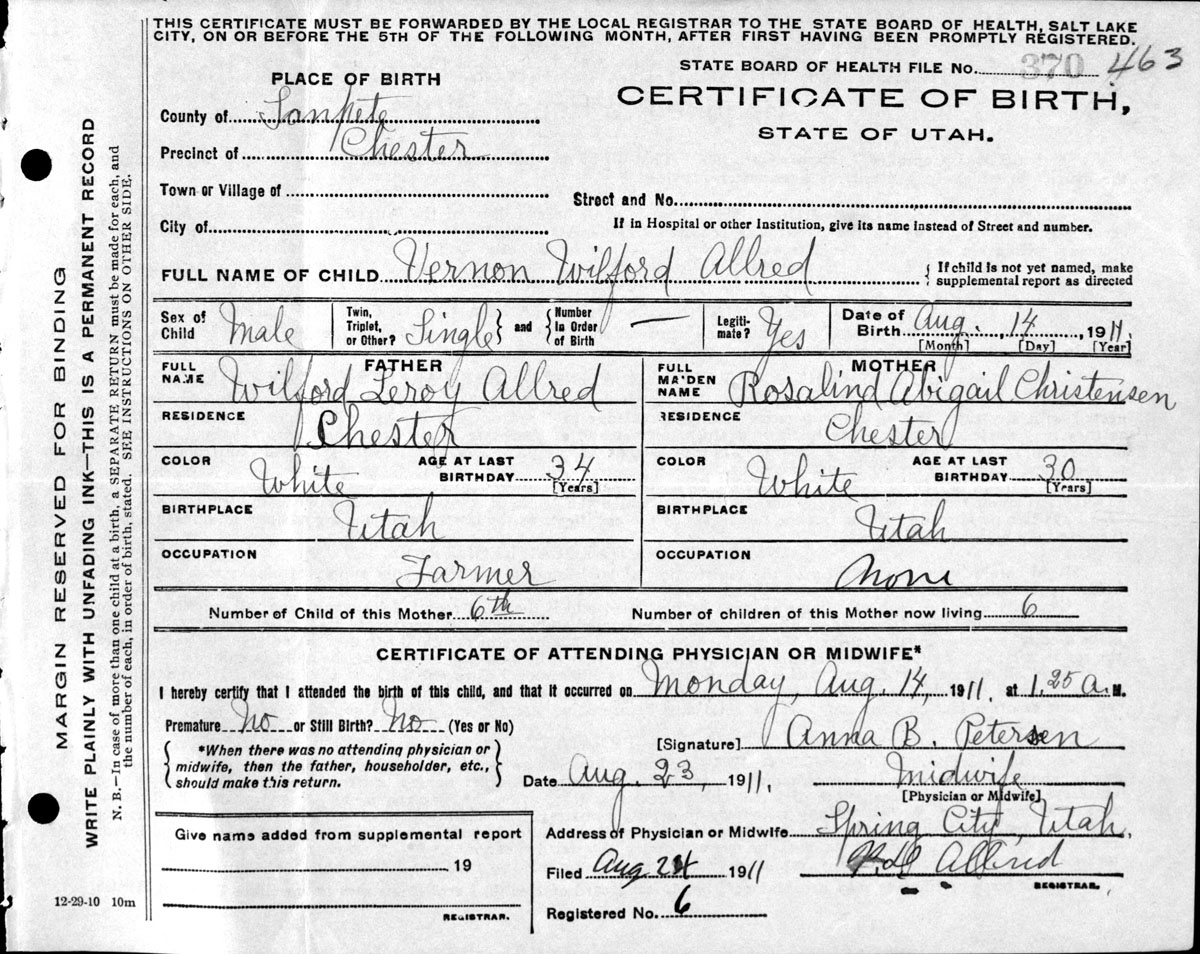 THIS CERTIFICATE MUST BE FORWARDED BY THE LOCAL REGISTRAR TO THE STATE BOARD OF HEALTH, SALT LAKE
CITY, ON OR BEFORE THE 5TH OF THE FOLLOWING MONTH, AFTER FIRST HAVING BEEN PROMPTLY REGISTERED.
STATE BOARD OF HEALTH FILE No. 370 463
PLACE OF BIRTH
CERTIFICATE OF BIRTH,
STATE OF UTAH.
County of Sanpete
Precinct of Chester
Town or Village of
Street and No.
City of
If in Hospital or other Institution, give its name instead of Street and number.
FULL NAME OF CHILD Vernon Wilford Allred { If child is not yet named, make
supplemental report as directed
Sex of Child Male Twin, Triplet, or Other? Single } and { Number In Order of Birth — Legiti-mate? Yes Date of Birth Aug. 14, 1911.
[Month] [Day] [Year]
FATHER MOTHER
FULL NAME Wilford Leroy Allred FULL MAIDEN NAME Rosalind Abigail Christensen
RESIDENCE Chester RESIDENCE Chester
COLOR White AGE AT LAST BIRTHDAY 34 [Years] COLOR White AGE AT LAST BIRTHDAY 30 [Years]
BIRTHPLACE Utah BIRTHPLACE Utah
OCCUPATION Farmer OCCUPATION None
Number of Child of this Mother 6th Number of children of this Mother now living 6
CERTIFICATE OF ATTENDING PHYSICIAN OR MIDWIFE*
I hereby certify that I attended the birth of this child, and that it occurred on Monday, Aug. 14, 1911, at 1.25 a. M.
Premature No or Still Birth? No (Yes or No)
{ *When there was no attending physician or
midwife, then the father, householder, etc.,
should make this return. }
[Signature] Anna B. Petersen
Date Aug. 23, 1911. Midwife
[Physician or Midwife]
Give name added from supplemental report
19
REGISTRAR.
Address of Physician or Midwife Spring City, Utah,
Filed Aug 24 1911 Allred
REGISTRAR.
Registered No. 6
12-29-10 10m
MARGIN RESERVED FOR BINDING
WRITE PLAINLY WITH UNFADING INK—THIS IS A PERMANENT RECORD
N. B.—In case of more than one child at a birth, a SEPARATE RETURN must be made for each, and
the number of each, in order of birth, stated. SEE INSTRUCTIONS ON OTHER SIDE.